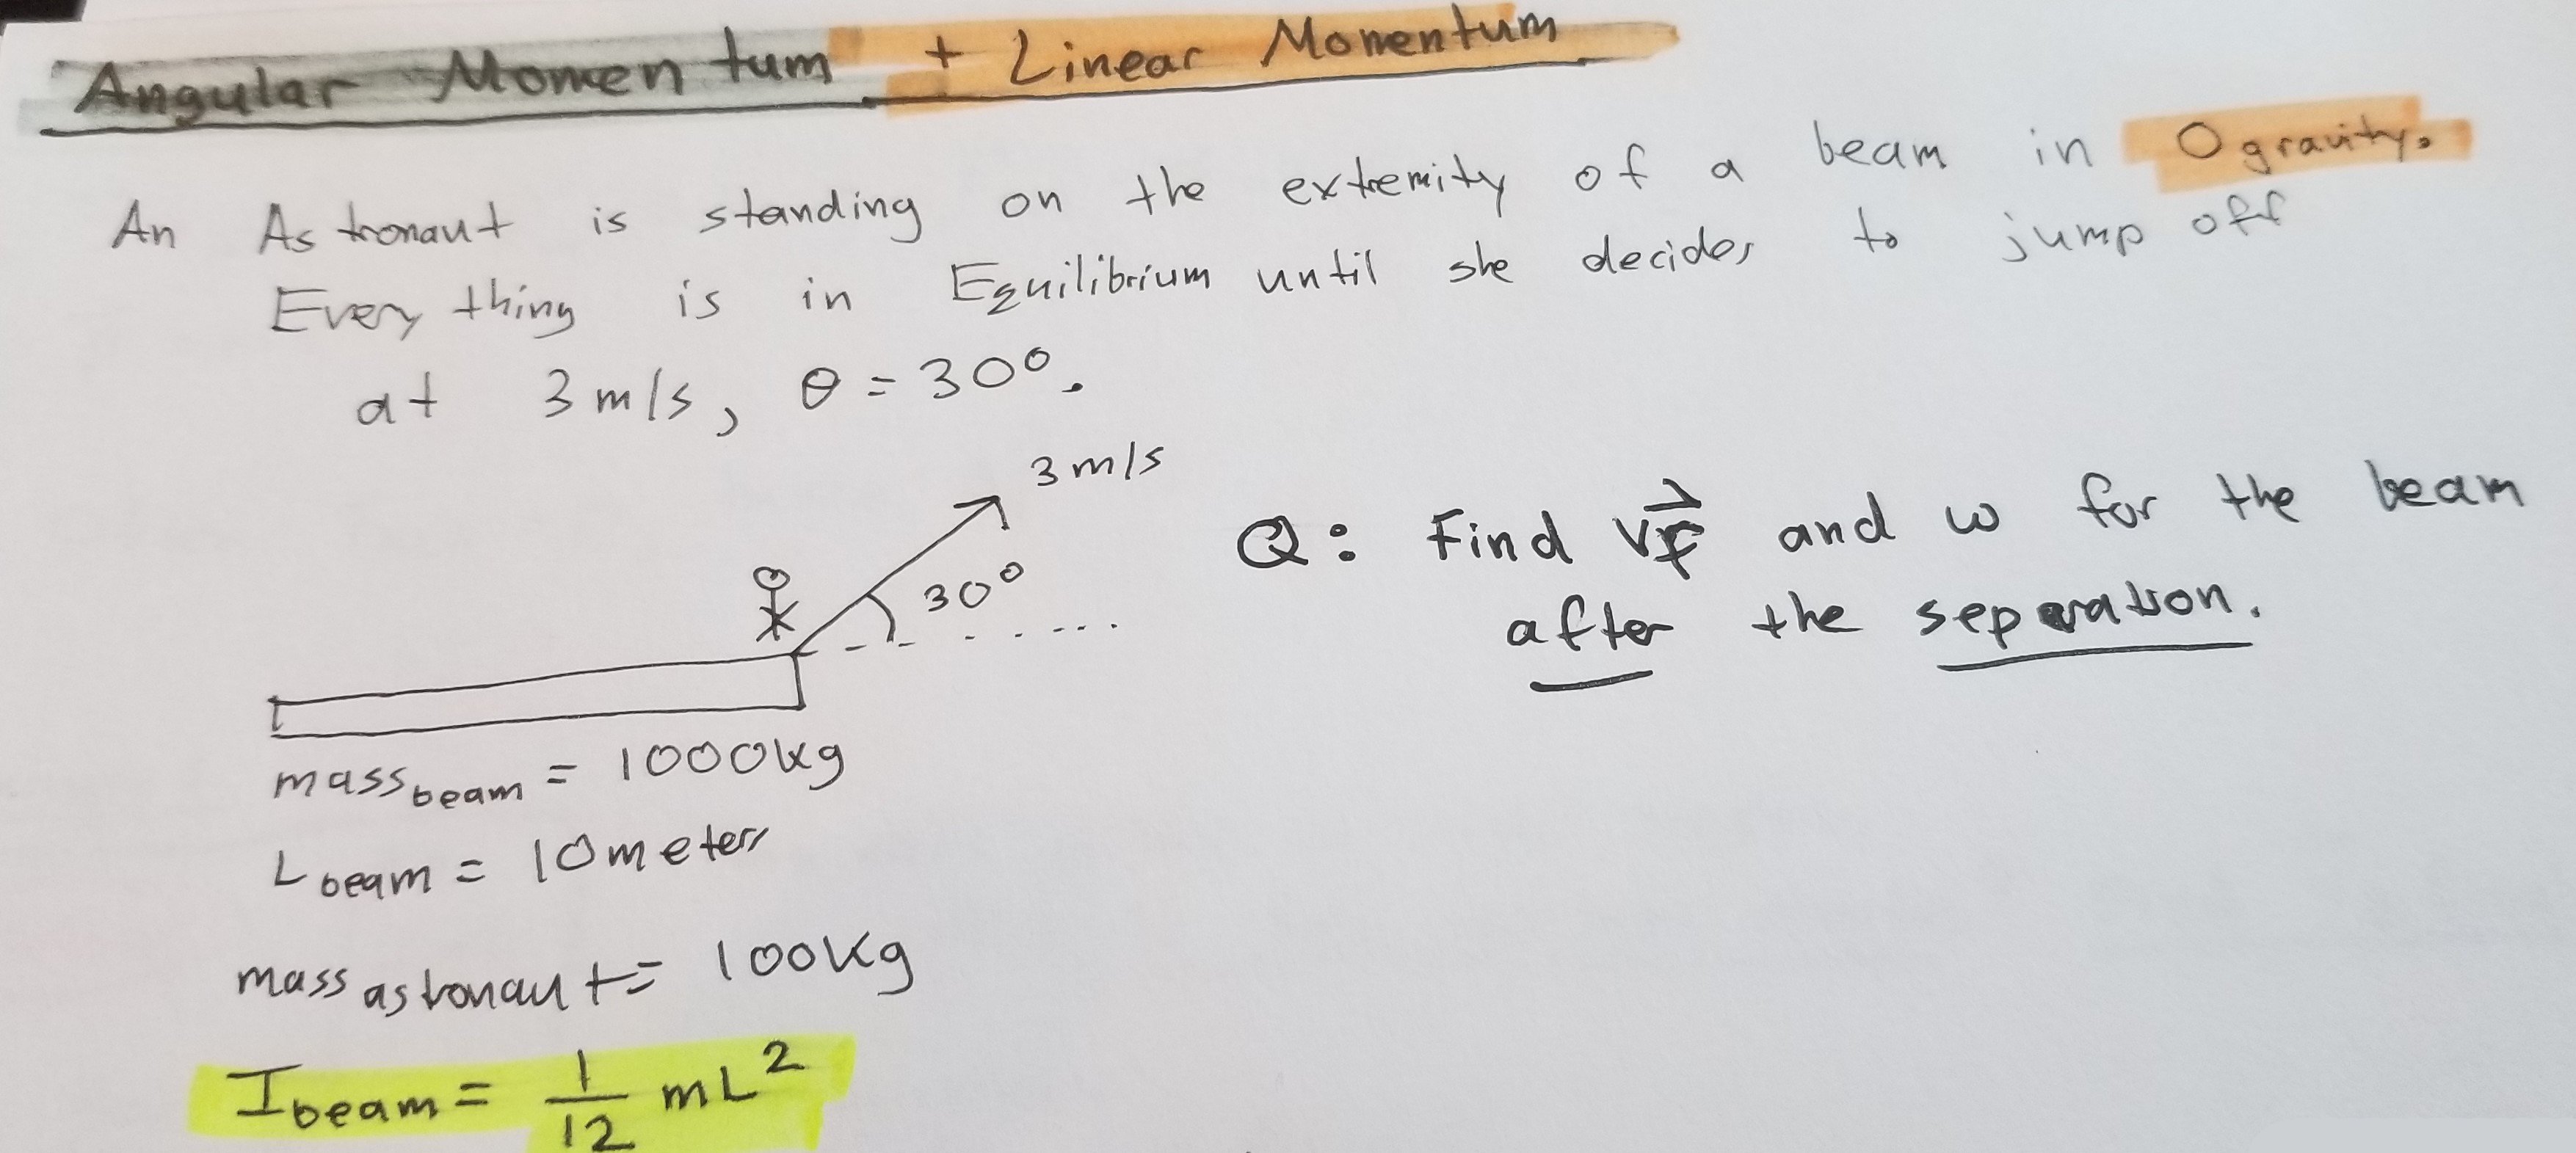 Angular Momentum + Linear Momentum
An Astronaut is standing on the extremity of a beam in 0 gravity.
Every thing is in Equilibrium until she decides to jump off
at 3 m/s, θ = 30°.
3 m/s
30°
Q: Find v⃗f and ω for the beam
after the separation.
mass beam = 1000kg
L beam = 10 meters
mass astronaut = 100Kg
I beam = 1/12 mL²